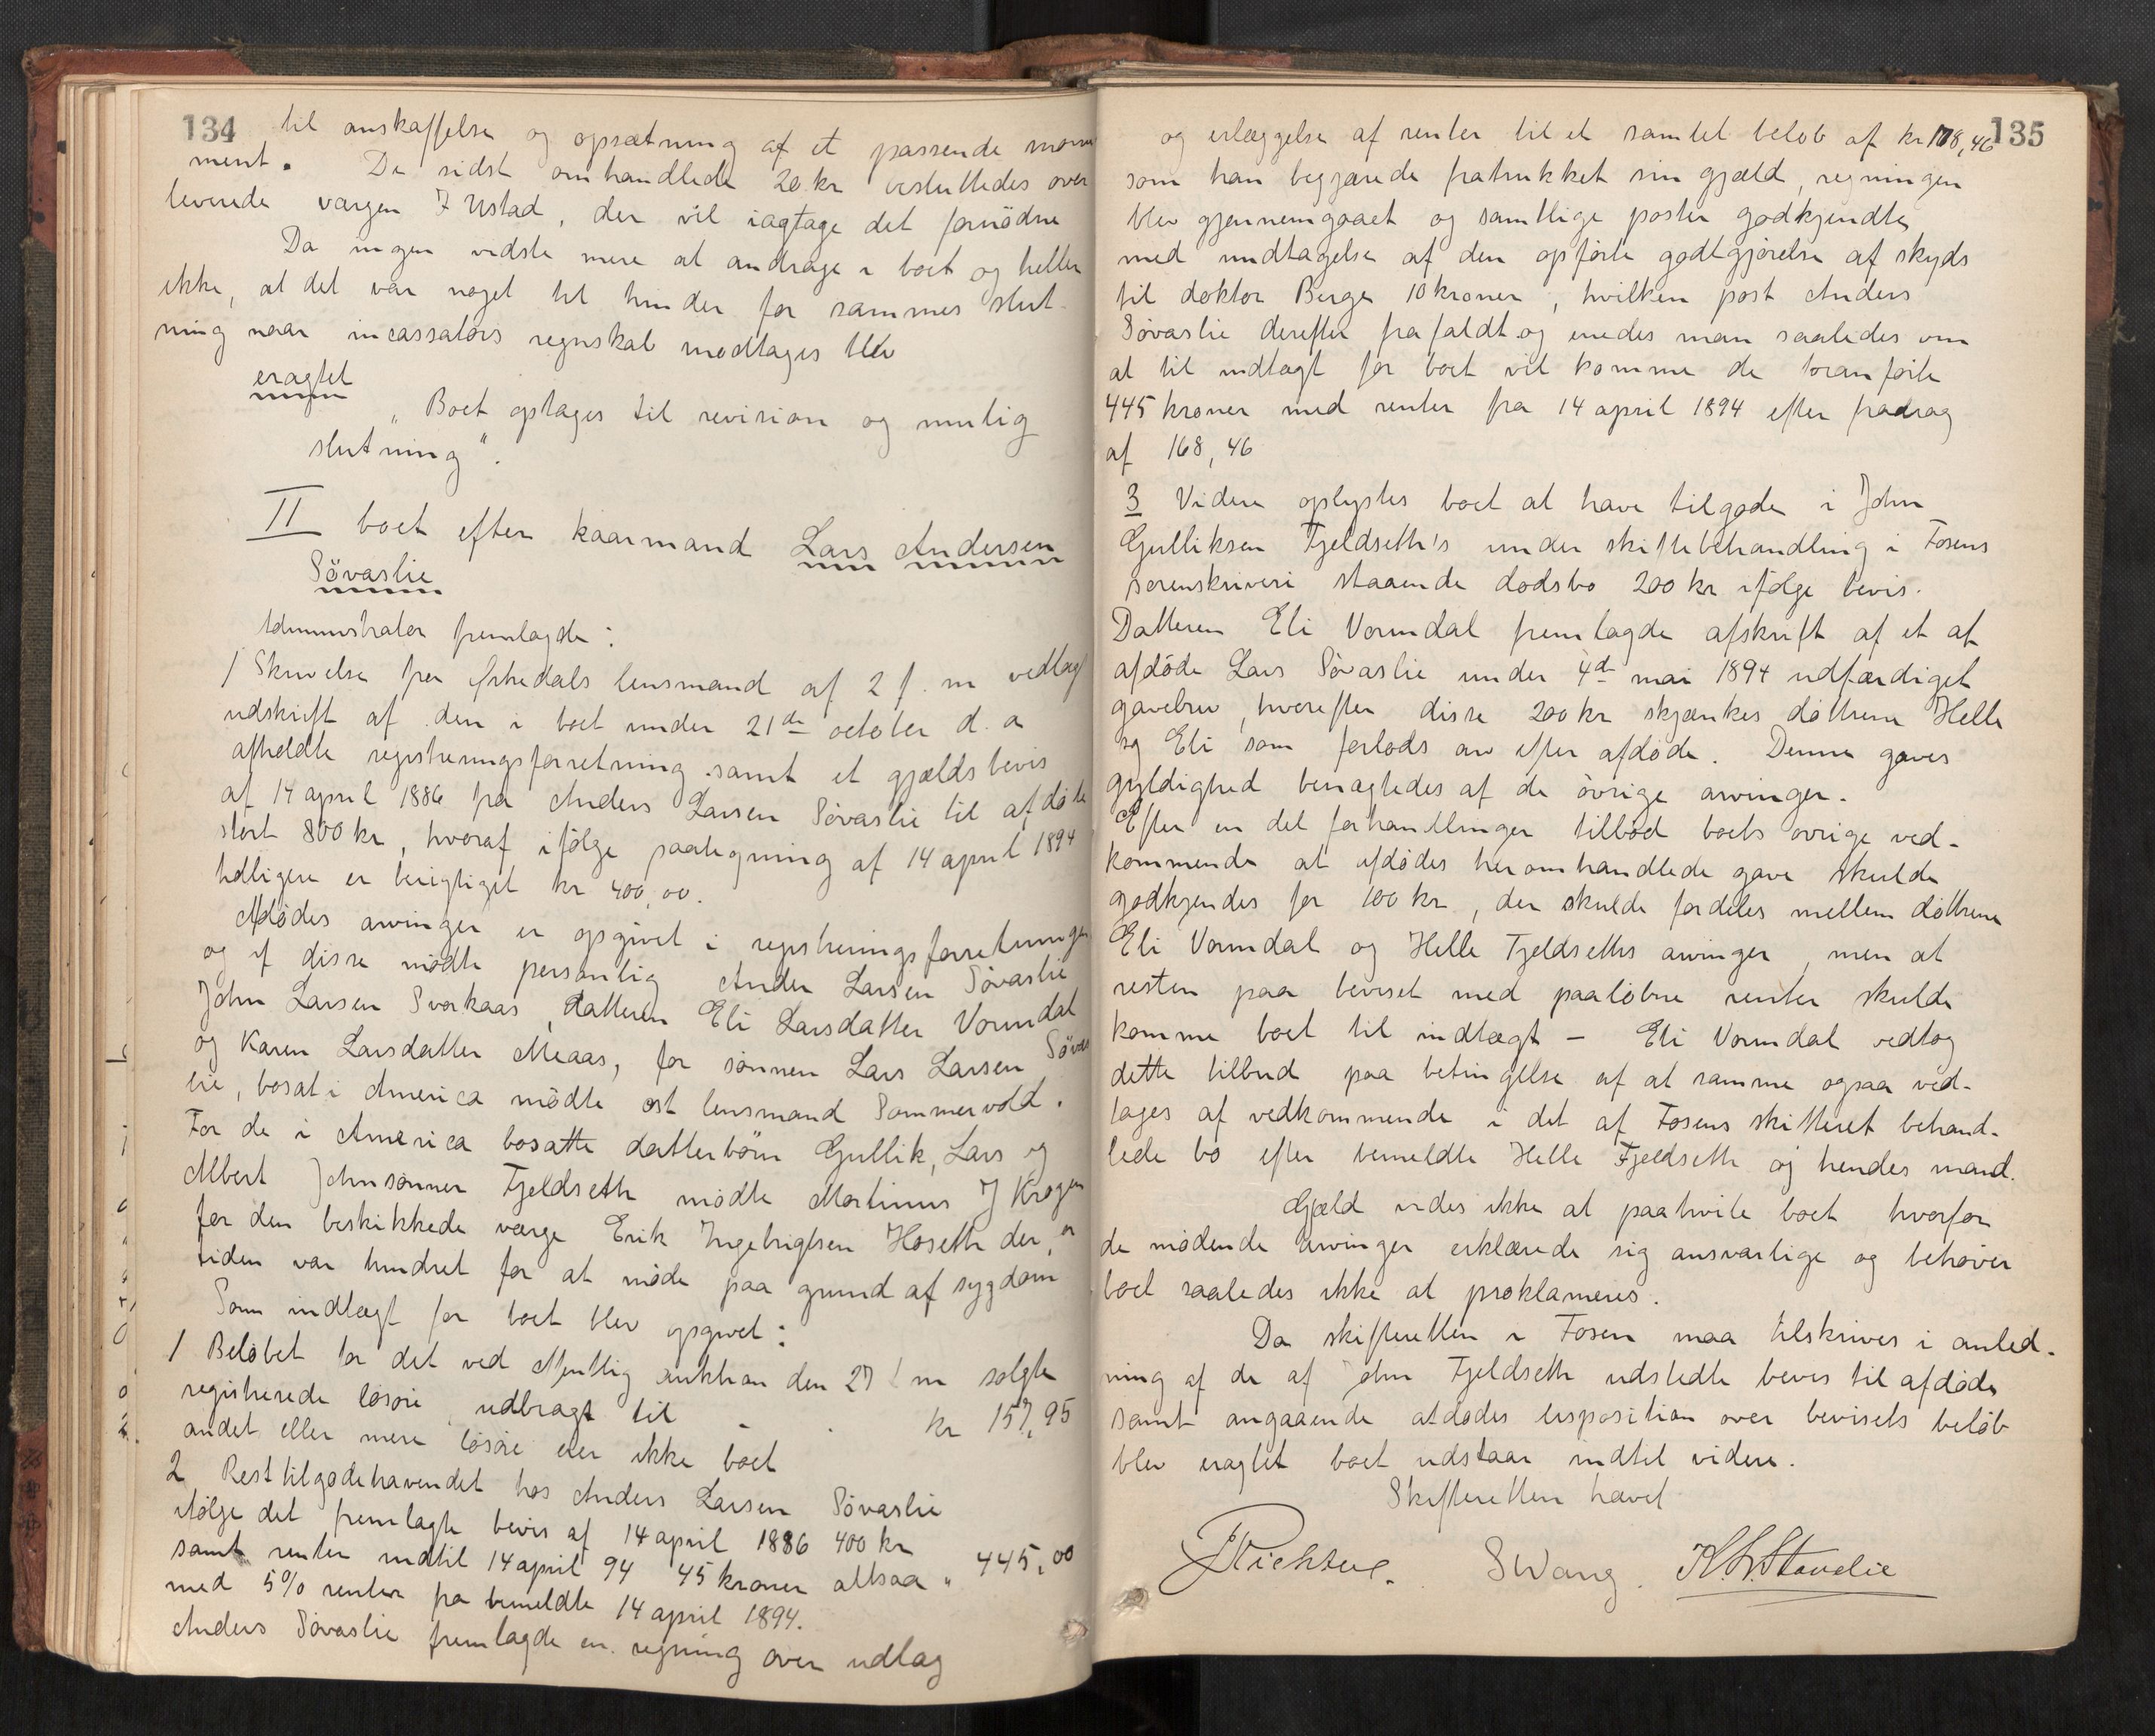 134
til anskaffelse og opsætning af et passende monu
ment. De sidst omhandlede 20 kr besluttedes over
leverede værgen I Ustad, der vil iagtage det fornødne
Da ingen vidste mere at andrage i boet og heller
ikke, at det var noget til hinder for sammes slut-
ning naar incassators regnskab modtages blev
eragtet
„Boet optages til revision og mulig
slutning".
II boet efter kaarmand Lars Andersen
Søvaslie
Administrator fremlagde:
1 Skrivelse fra Orkedals lensmand af 2 f. m vedlagt
udskrift af den i boet under 21de october d. a
afholdte registreringsforretning samt et gjældsbevis
af 14 april 1886 fra Anders Larsen Søvaslie til afdøde
stort 800 kr, hvoraf ifølge paategning af 14 april 1894
tidligere er berigtiget kr 400,00.
Afdødes arvinger er opgivet i registreringsforretningen
og af disse mødte personlig Anders Larsen Søvaslie
John Larsen Svorkaas, datteren Eli Larsdatter Vormdal
og Karen Larsdatter Aaas, for sønnen Lars Larsen Søvas
lie, bosat i America mødte cst lensmand Sommervold.
For de i America bosatte datterbørn Gullik, Lars og
Albert Johnsønner Fjeldseth mødte Martinus J Krogen
for den beskikkede værge Erik Ingebrigtsen Hoseth der,
siden var hindret for at møde paa grund af sygdom
Som indtægt for boet blev opgivet:
1 Beløbet for det ved offentlig auktion den 27 f m solgte
registrerede løsøre, udbragt til - kr 157,95
andet eller mere løsøre eier ikke boet
2 Resttilgodehavendet hos Anders Larsen Søvaslie
ifølge det fremlagte bevis af 14 april 1886 400 kr
samt renter indtil 14 april 94 45 kroner altsaa „ 445,00
med 5% renter fra bemeldte 14 april 1894.
Anders Søvaslie fremlagde en regning over udlæg
135
og erlæggelse af renter til et samlet beløb af kr 178,46
som han begjærede fratrukket sin gjæld, regningen
blev gjennemgaaet og samtlige poster godkjendte
med undtagelse af den opførte godtgjørelse af skyds
til doktor Berge 10 kroner, hvilken post Anders
Søvaslie derefter frafaldt og enedes man saaledes om
at til indtægt for boet vil komme de foranførte
445 kroner med renter fra 14 april 1894 efter fradrag
af 168,46
3 Videre oplystes boet at have tilgode i John
Gulliksen Fjeldseth's under skiftebehandling i Fosens
sorenskriveri staaende dødsbo 200 kr ifølge bevis.
Datteren Eli Vormdal fremlagde afskrift af et af
afdøde Lars Søvaslie under 4de mai 1894 udfærdiget
gavebrev, hvorefter disse 200 kr skjænkes døttrene Helle
og Eli som forlods arv efter afdøde. Denne gaves
gyldighed benægtedes af de øvrige arvinger.
Efter en del forhandlinger tilbød boets øvrige ved-
kommende at afdødes heromhandlede gave skulde
godkjendes for 100 kr, der skulde fordeles mellem døttrene
Eli Vormdal og Helle Fjeldseths arvinger, men at
resten paa beviset med paaløbne renter skulde
komme boet til indtægt - Eli Vormdal vedtog
dette tilbud paa betingelse af at samme ogsaa ved-
tages af vedkommende i det af Fosens skifteret behand-
lede bo efter bemeldte Helle Fjeldseth og hendes mand.
Gjæld vides ikke at paahvile boet hvorfor
de mødende arvinger erklærede sig ansvarlige og behøver
boet saaledes ikke at proklameres.
Da skifteretten i Fosen maa tilskrives i anled-
ning af de af John Fjeldseth udstedte bevis til afdøde
samt angaaende afdødes disposition over bevisets beløb
blev eragtet boet udstaar indtil videre.
Skifteretten hævet
Richter. S Wang. K. L. Stavelie